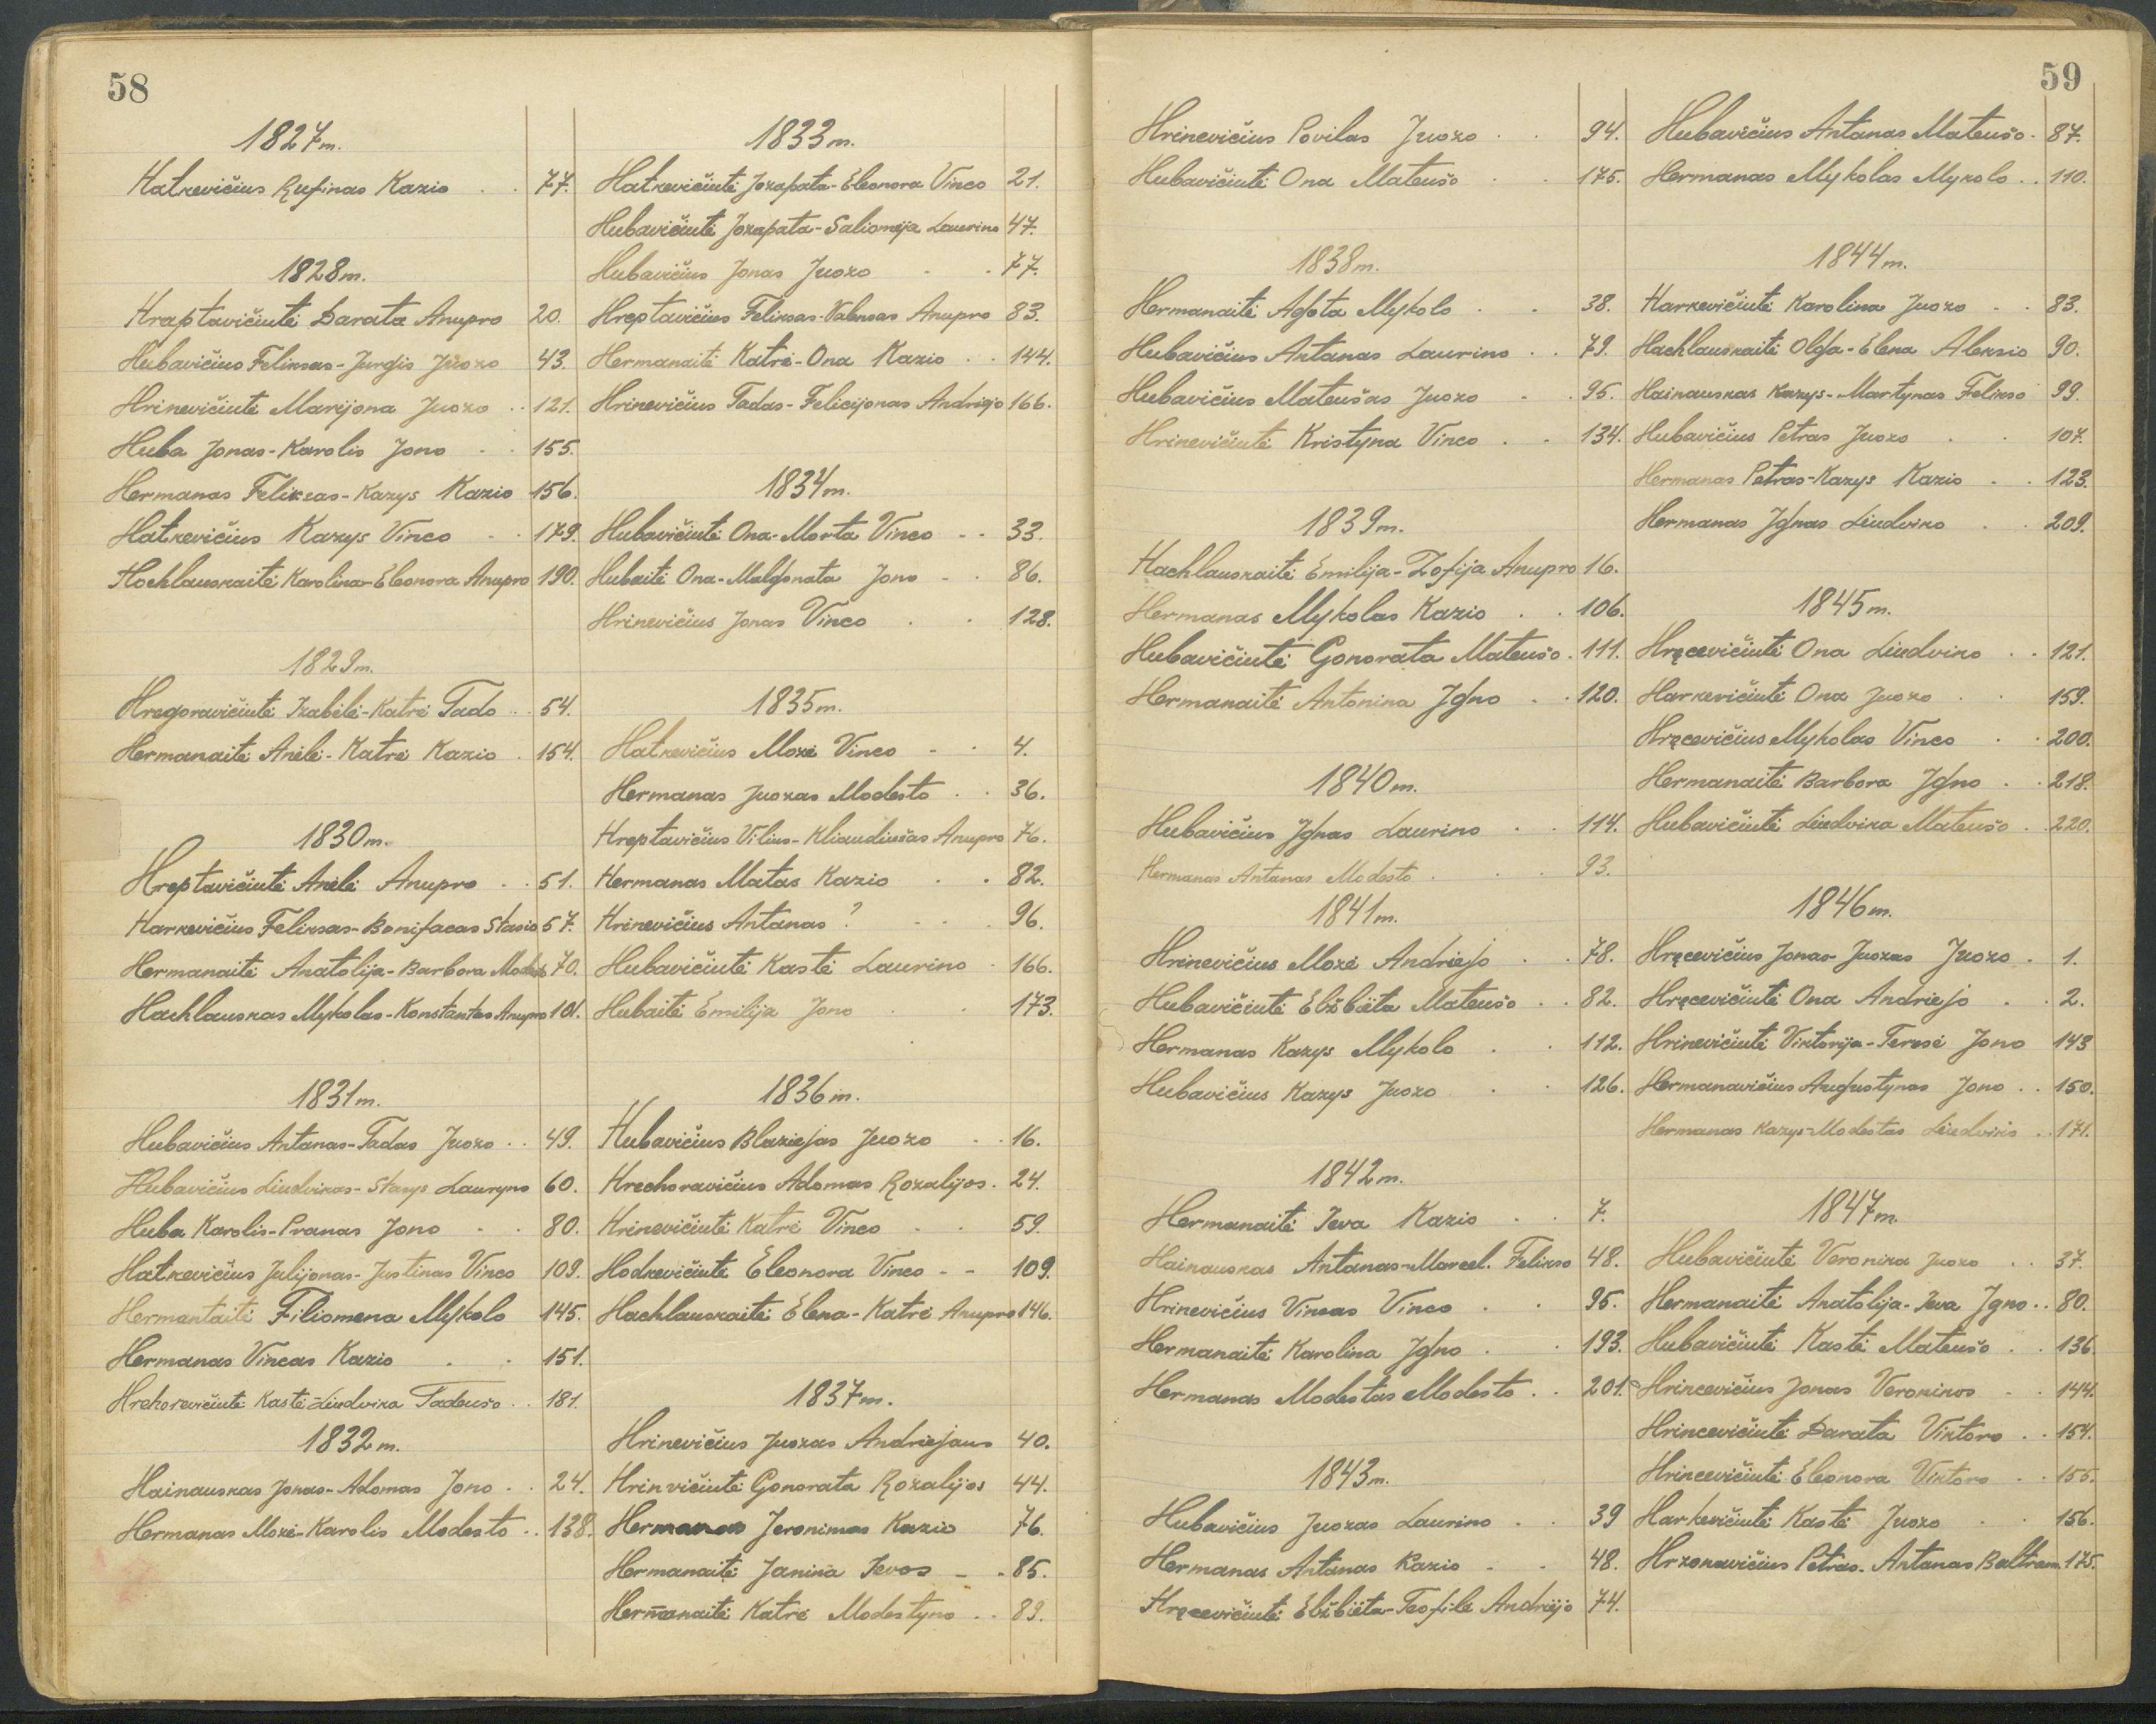 58
1827 m.
Hatkevičius Rufinas Kazio . . 77.
1828 m.
Hraptavičiutė Darata Anupro 20.
Hubavičius Feliksas-Jurgis Juozo 43.
Hrinevičiutė Marijona Juozo . . 121.
Huba Jonas-Karolis Jono . . 155.
Hermanas Feliksas-Kazys Kazio 156.
Hatkevičius Kazys Vinco . . 179.
Hochlauskaitė Karolina-Eleonora Anupro 190.
1829 m.
Hregoravičiutė Izabėlė-Katrė Tado . . 54.
Hermanaitė Anėlė-Katrė Kazio . 154.
1830 m.
Hreptavičiutė Anėlė Anupro . . 51.
Harkevičius Feliksas-Bonifacas Stasio 57.
Hermanaitė Anatolija-Barbora Modesto 70.
Hachlauskas Mykolas-Konstantas Anupro 101.
1831 m.
Hubavičius Antanas-Tadas Juozo . . 49.
Hubavičius Liudvikas-Stasys Lauryno 60.
Huba Karolis-Pranas Jono . . 80.
Hatkevičius Julijonas-Justinas Vinco 109.
Hermantaitė Filiomena Mykolo 145.
Hermanas Vincas Kazio . . 151.
Hrehorevičiutė Kastė-Liudvika Tadeušo . . 181.
1832 m.
Hainauskas Jonas-Adomas Jono . . 24.
Hermanas Mozė-Karolis Modesto . . 138.
1833 m.
Hatkevičiutė Jozapata-Eleonora Vinco 21.
Hubavičiutė Jozapata-Saliomėja Laurino 47.
Hubavičius Jonas Juozo . . 77.
Hreptavičius Feliksas-Valensas Anupro 83.
Hermanaitė Katrė-Ona Kazio . . 144.
Hrinevičius Tadas-Felicijonas Andriejo 166.
1834 m.
Hubavičiutė Ona-Morta Vinco . . 33.
Hubaitė Ona-Malgonata Jono . . 86.
Hrinevičius Jonas Vinco . . 128.
1835 m.
Hatkevičius Mozė Vinco . . 4.
Hermanas Juozas Modesto . . 36.
Hreptavičius Vilius-Kliaudiušas Anupro 76.
Hermanas Matas Kazio . . 82.
Hrinevičius Antanas ? . . . 96.
Hubavičiutė Kastė Laurino . 166.
Hubaitė Emilija Jono . . 173.
1836 m.
Hubavičius Blaziejas Juozo . . 16.
Hrechoravičius Adomas Rozalijos . 24.
Hrinevičiutė Katrė Vinco . . 59.
Hodkevičiutė Eleonora Vinco - - 109.
Hachlauskaitė Elena-Katrė Anupro 146.
1837 m.
Hrinevičius Juozas Andriejaus 40.
Hrinvičiutė Gonorata Rozalijos 44.
Hermanas Jeronimas Kazio 76.
Hermanaitė Janina Ievos - . 85.
Hermanaitė Katrė Modestyno . . 89.
59
Hrinevičius Povilas Juozo . . 94.
Hubavičiutė Ona Mateušo . . 175.
1838 m.
Hermanaitė Agota Mykolo . . 38.
Hubavičius Antanas Laurino . . 79.
Hubavičius Mateušas Juozo . . 95.
Hrinevičiutė Kristyna Vinco . . 134.
1839 m.
Hachlauskaitė Emilija-Zofija Anupro 16.
Hermanas Mykolas Kazio . . 106.
Hubavičiutė Gonorata Mateušo . 111.
Hermanaitė Antonina Igno . . 120.
1840 m.
Hubavičius Ignas Laurino . . 114.
Hermanas Antanas Modesto . . . 93.
1841 m.
Hrinevičius Mozė Andriejo . . 78.
Hubavičiutė Elžbieta Mateušo . . 82.
Hermanas Kazys Mykolo . . 112.
Hubavičius Kazys Juozo . . 126.
1842 m.
Hermanaitė Ieva Kazio . . 7.
Hainauskas Antanas-Marcel. Felikso 48.
Hrinevičius Vincas Vinco . . 95.
Hermanaitė Karolina Igno . . 193.
Hermanas Modestas Modesto . . 201.
1843 m.
Hubavičius Juozas Laurino . . 39
Hermanas Antanas Kazio . . 48.
Hręcevičiutė Elžbieta-Teofilė Andriejo 74.
Hubavičius Antanas Mateušo . 87.
Hermanas Mykolas Mykolo . . 110.
1844 m.
Harkevičiutė Karolina Juozo . . 83.
Hachlauskaitė Olga-Elena Aleksio 90.
Hainauskas Kazys-Martynas Felikso 99.
Hubavičius Petras Juozo . . 107.
Hermanas Petras-Kazys Kazio . . 123.
Hermanas Ignas Liudviko . . 209.
1845 m.
Hręcevičiutė Ona Liudviko . . 121.
Harkevičiutė Ona Juozo . . 159.
Hręcevičius Mykolas Vinco . . 200.
Hermanaitė Barbora Igno . . 218.
Hubavičiutė Liudvika Mateušo . 220.
1846 m.
Hręcevičius Jonas-Juozas Juozo . 1.
Hręcevičiutė Ona Andriejo . . 2.
Hrinevičiutė Viktorija-Teresė Jono 143
Hermanavičius Augustynas Jono . . 150.
Hermanas Kazys-Modestas Liudviko . . 171.
1847 m.
Hubavičiutė Veronika Juozo . . 37.
Hermanaitė Anatolija-Ieva Igno . . 80.
Hubavičiutė Kastė Mateušo . . 136.
Hrincevičius Jonas Veronikos . . 144.
Hrincevičiutė Darata Viktoro . . 154.
Hrincevičiutė Eleonora Viktoro . . 155.
Harkevičiutė Kastė Juozo . . 156.
Hrzonavičius Petras-Antanas Baltram. 175.